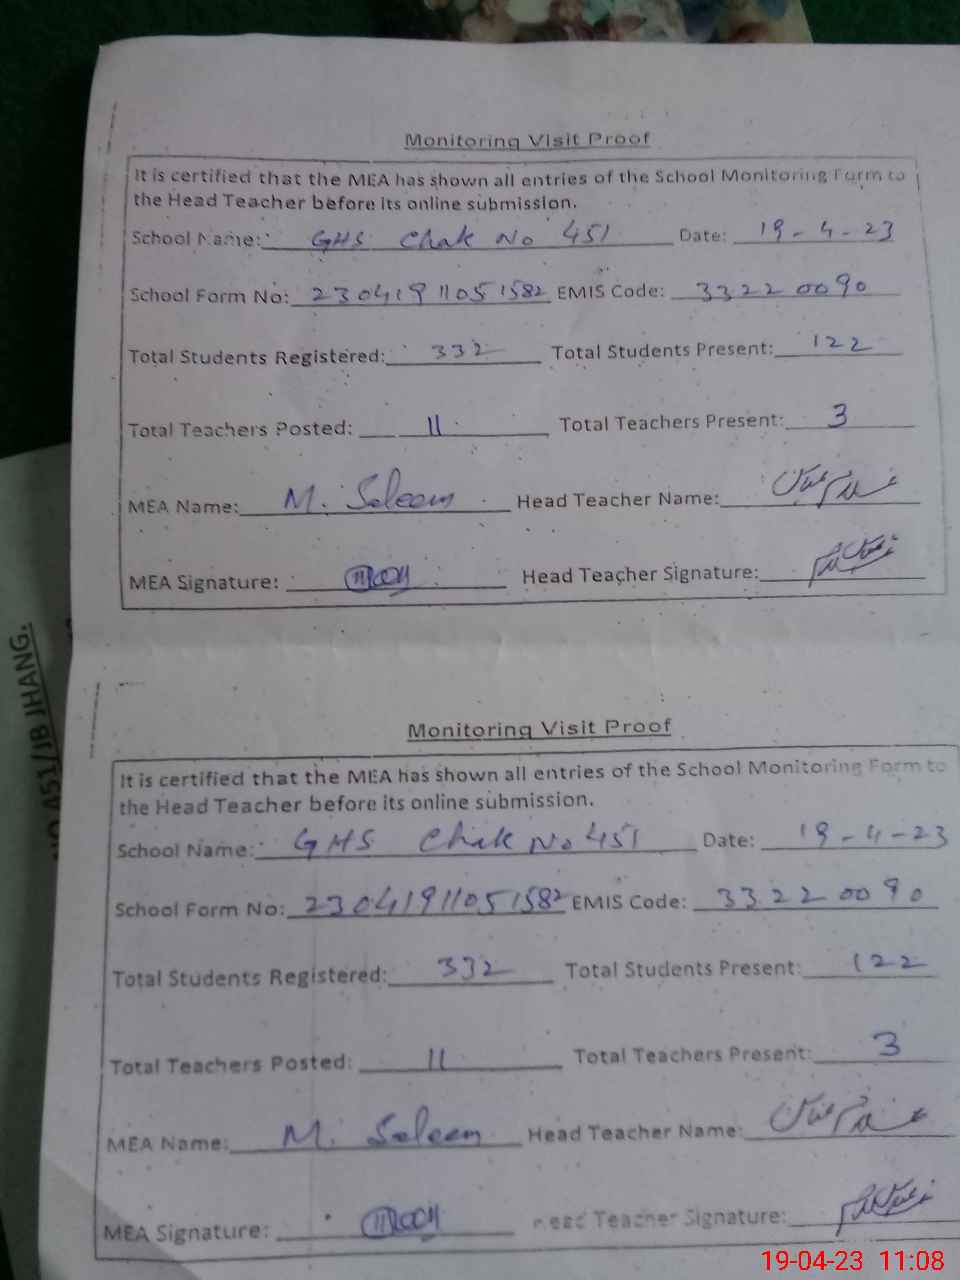 Monitoring Visit Proof
It is certified that the MEA has shown all entries of the School Monitoring Form to
the Head Teacher before its online submission.
School Name: GHS Chak No 451 Date: 19-4-23
School Form No: 23041911051582 EMIS Code: 33220090
Total Students Registered: 332 Total Students Present: 122
Total Teachers Posted: 11 Total Teachers Present: 3
MEA Name: M. Saleem Head Teacher Name:
MEA Signature: Head Teacher Signature:
Monitoring Visit Proof
It is certified that the MEA has shown all entries of the School Monitoring Form to
the Head Teacher before its online submission.
School Name: GHS Chak No 451 Date: 19-4-23
School Form No: 23041911051582 EMIS Code: 33220090
Total Students Registered: 332 Total Students Present: 122
Total Teachers Posted: 11 Total Teachers Present: 3
MEA Name: M. Saleem Head Teacher Name:
MEA Signature: Head Teacher Signature:
451/JB JHANG.
19-04-23 11:08